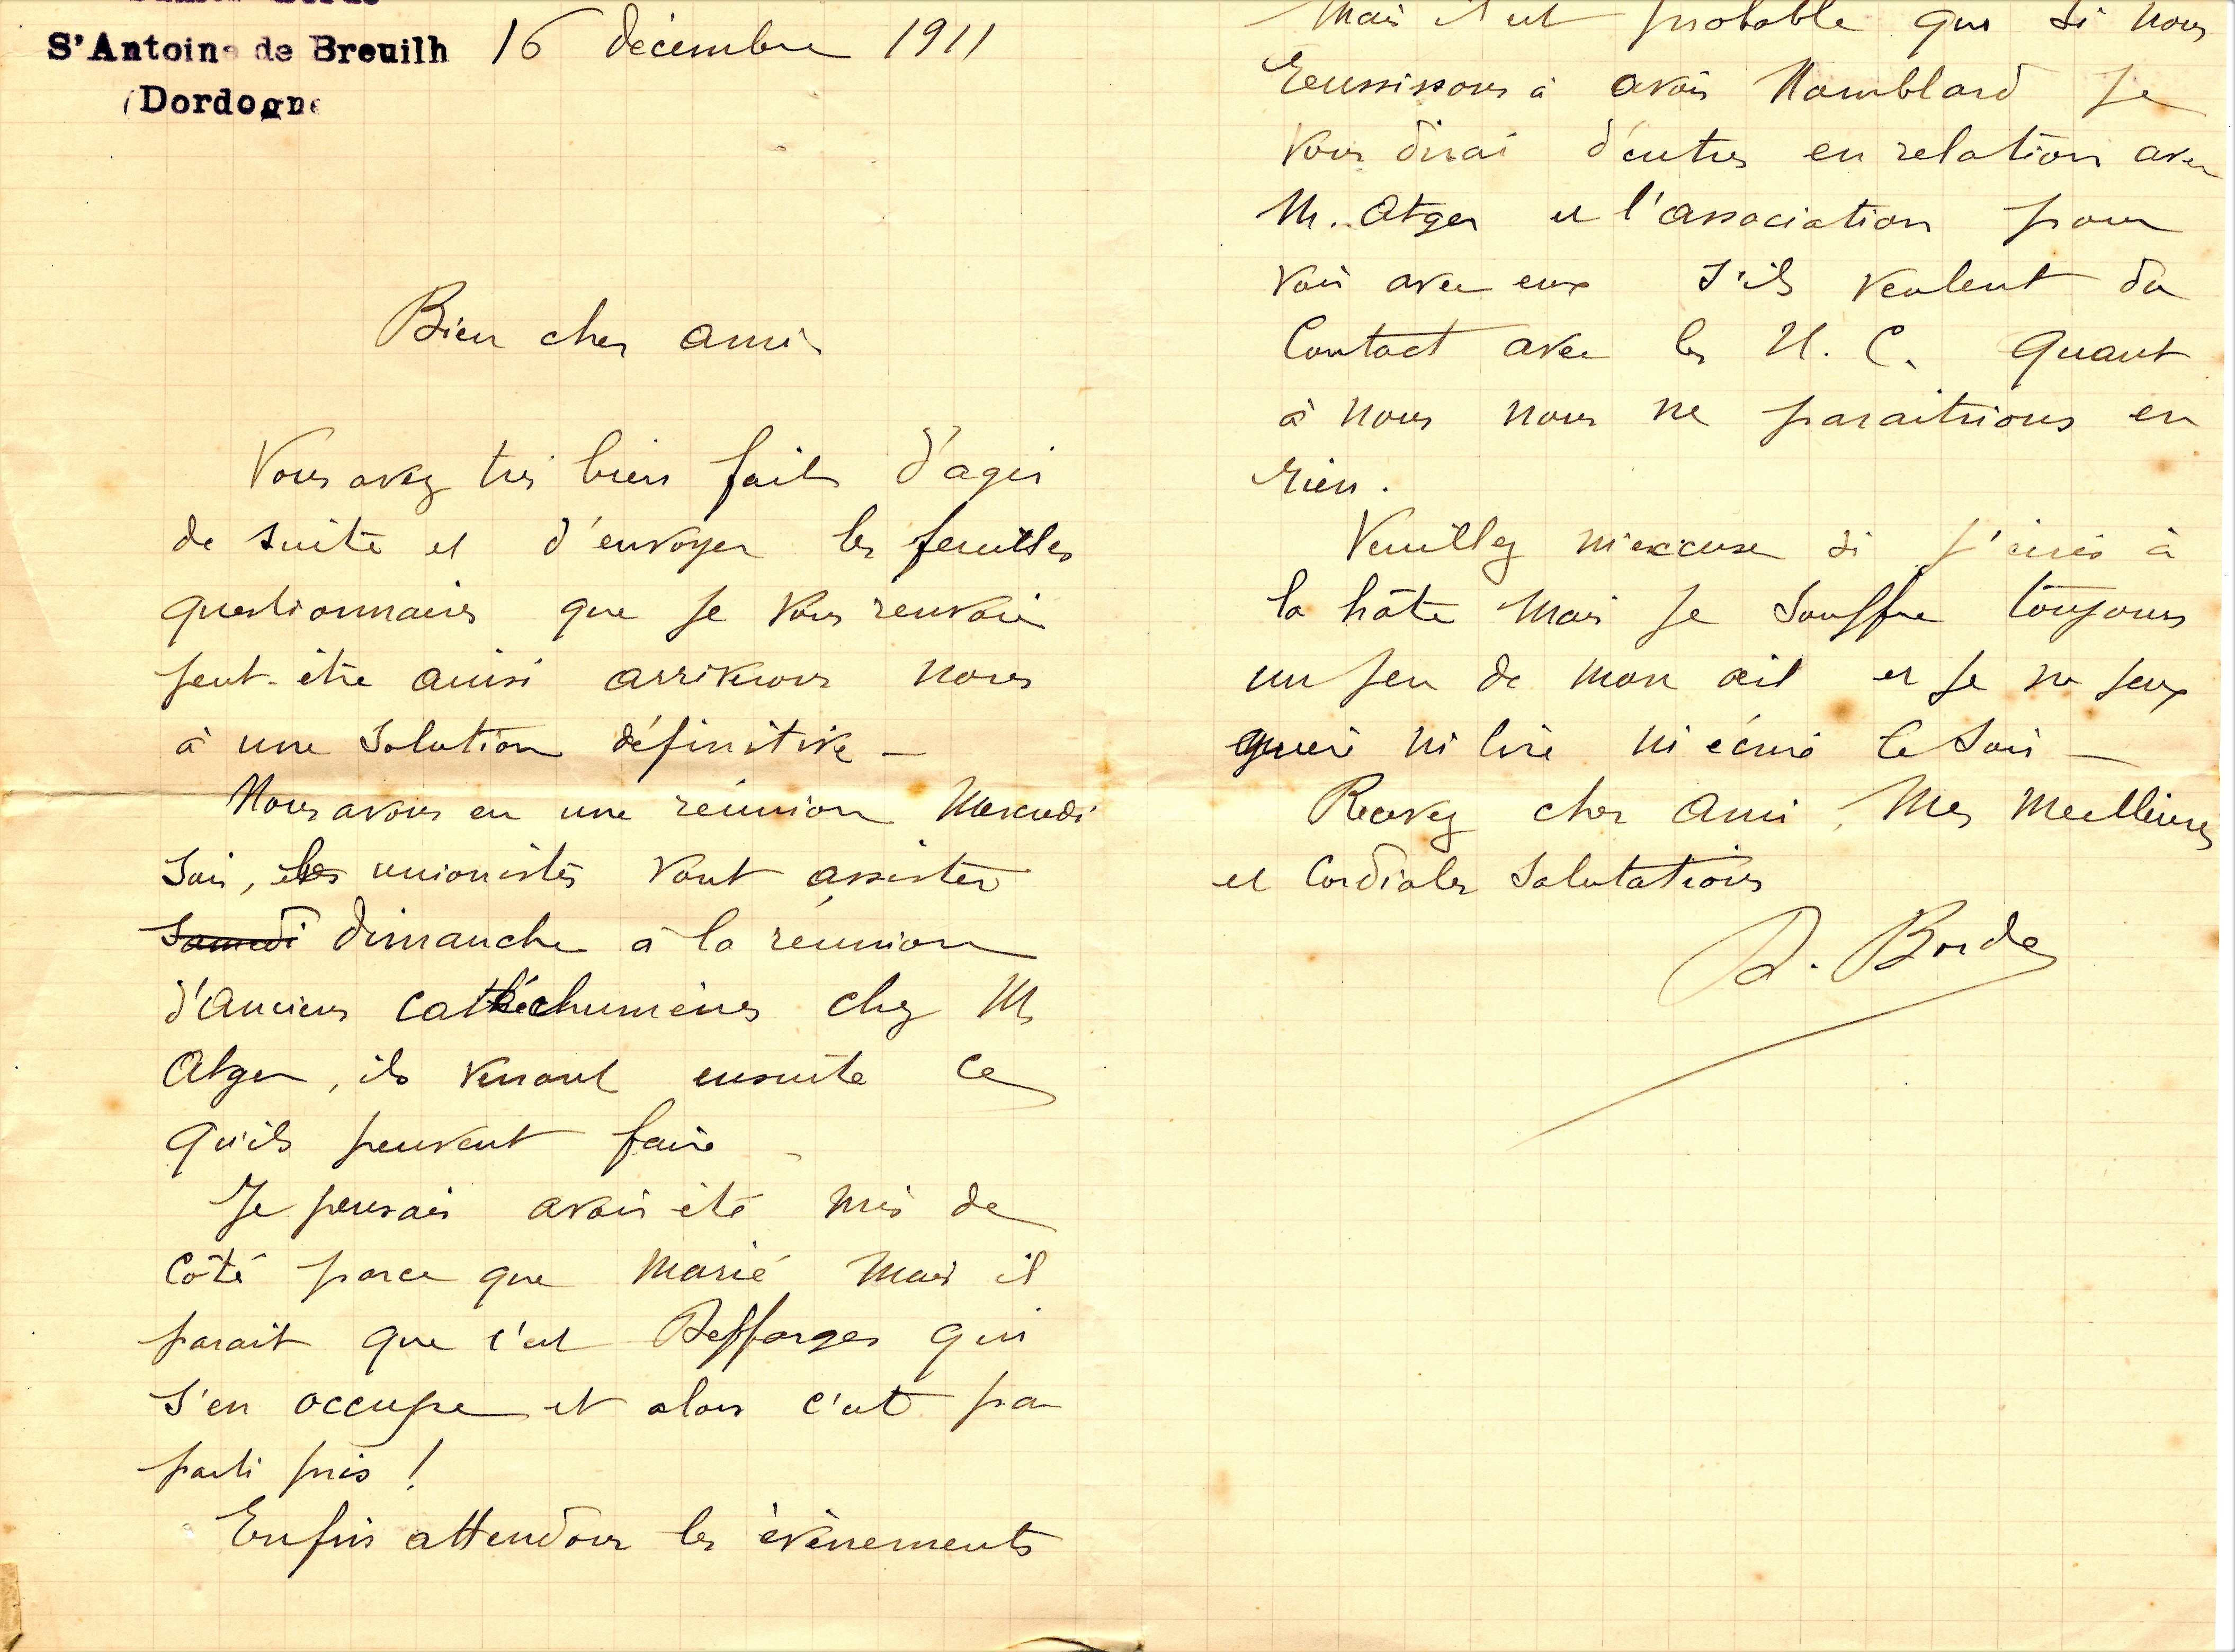 S'Antoine de Breuilh 16 décembre 1911
(Dordogne
Bien cher ami
Vous avez très bien fait d'agir
de suite et d'envoyer les feuilles
questionnaires que je vous renvoie
peut-être ainsi arriverons nous
à une solution définitive —
Nous avons eu une réunion Mercredi
soir, les unionistes vont assister
Samedi dimanche à la réunion
d'anciens cathéchumènes chez M.
Atger, ils verront ensuite ce
qu'ils peuvent faire —
Je pensais avoir été mis de
côté parce que marié mais il
parait que c'est Deffarges qui
s'en occupe et alors c'est par
parti pris !
Enfin attendons les évènements
Mais il est probable que si nous
Réussissons à avoir Hamblard je
vous dirai d'entrer en relation avec
M. Atger et l'association pour
voir avec eux s'ils veulent du
Contact avec les U. C. Quant
à nous nous ne paraitrions en
rien.
Veuillez m'excuser si j'écris à
la hâte mais je souffre toujours
un peu de mon œil et je ne peux
guère ni lire ni écrire le soir —
Recevez cher ami, mes meilleures
et cordiales salutations
Borde